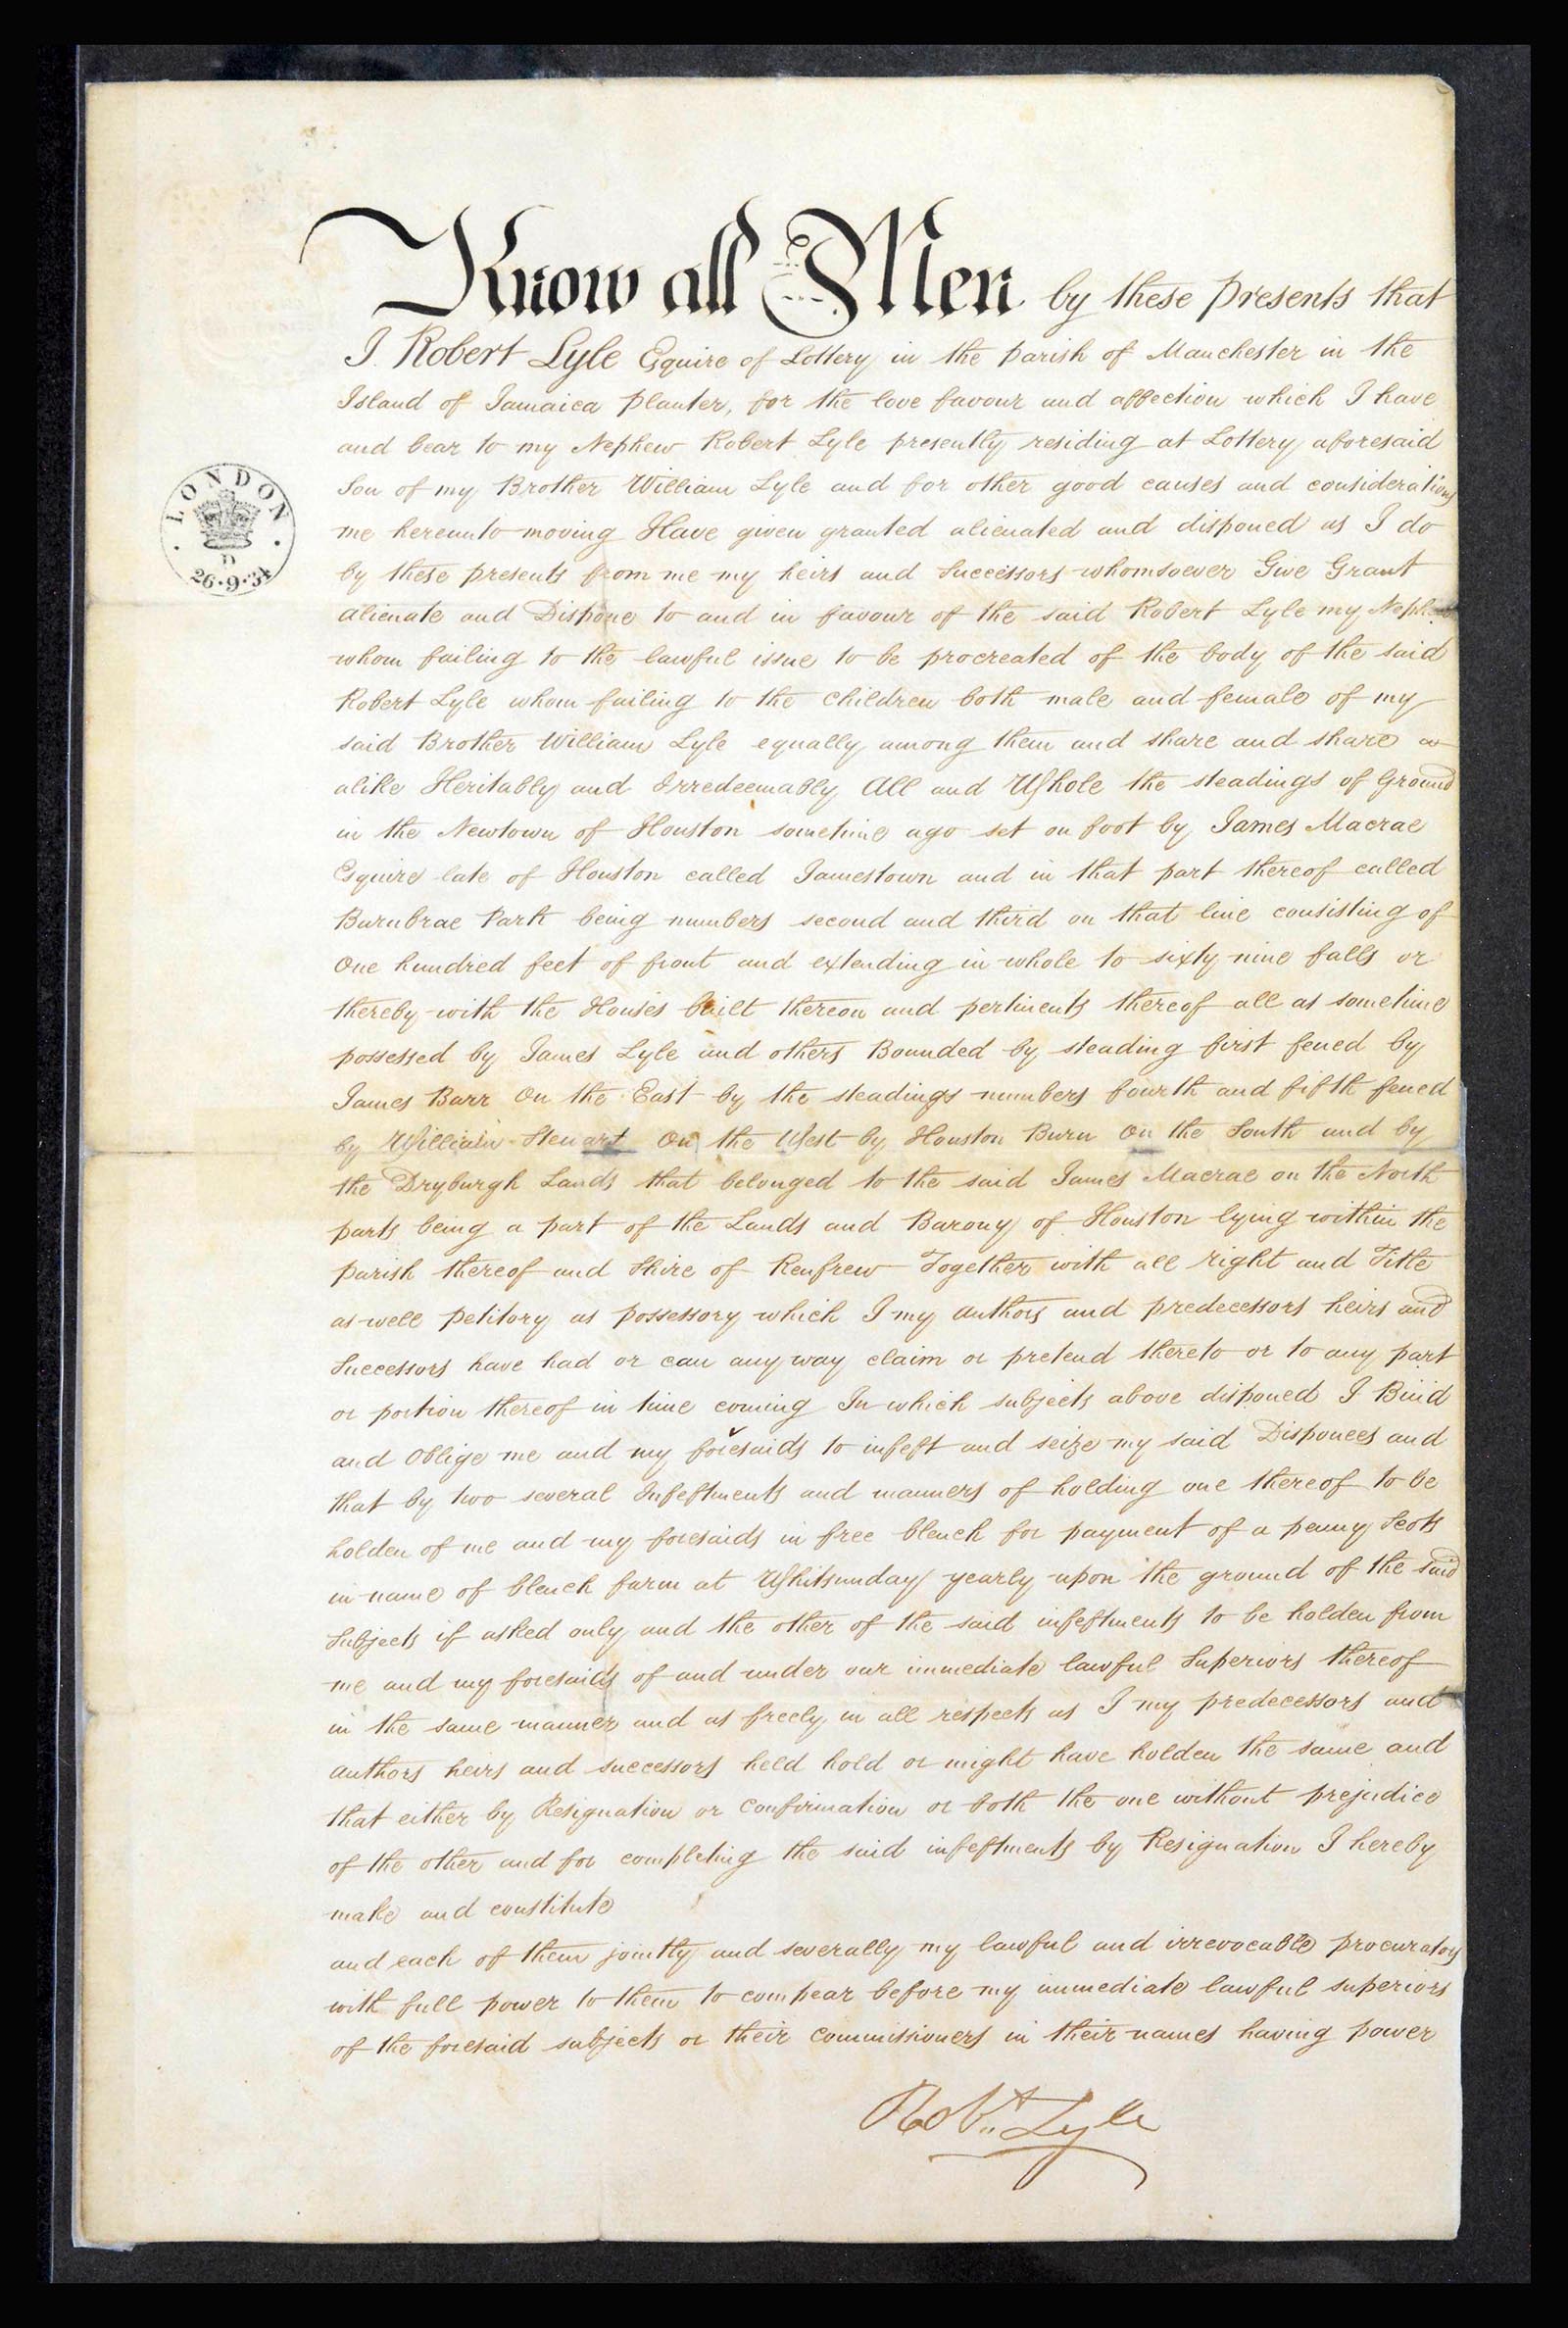 Know all Men by these presents that
I Robert Lyle Esquire of Lottery in the parish of Manchester in the
Island of Jamaica planter, for the love favour and affection which I have
and bear to my Nephew Robert Lyle presently residing at Lottery aforesaid
LONDON
D
26.9.34
Son of my Brother William Lyle and for other good causes and considerations
me hereunto moving Have given granted alienated and disponed as I do
by these presents from me my heirs and Successors whomsoever Give Grant
alienate and Dispone to and in favour of the said Robert Lyle my
whom failing to the lawful issue to be procreated of the body of the said
Robert Lyle whom failing to the children both male and female of my
said Brother William Lyle equally among them and share and share
alike Heritably and Irredeemably All and Whole the steadings of Ground
in the Newtown of Houston sometime ago set on foot by James Macrae
Esquire late of Houston called Jamestown and in that part thereof called
Burnbrae Park being numbers second and third on that line consisting of
One hundred feet of front and extending in whole to sixty nine falls or
thereby with the Houses built thereon and pertinents thereof all as sometime
possessed by James Lyle and others Bounded by steading first feued by
James Barr On the East by the steadings numbers fourth and fifth feued
by William Steuart On the West by Houston Burn On the South and by
the Dryburgh Lands that belonged to the said James Macrae on the North
parts being a part of the Lands and Barony of Houston lying within the
parish thereof and Shire of Renfrew Together with all right and Title
as well petitory as possessory which I my authors and predecessors heirs and
Successors have had or can any way claim or pretend thereto or to any part
or portion thereof in time coming In which subjects above disponed I Bind
and Oblige me and my foresaids to infeft and seize my said Disponees and
that by two several Infeftments and manners of holding one thereof to be
holden of me and my foresaids in free blench for payment of a penny Scots
in name of blench farm at Whitsunday yearly upon the ground of the said
Subjects if asked only and the other of the said infeftments to be holden from
me and my foresaids of and under our immediate lawful Superiors thereof
in the same manner and as freely in all respects as I my predecessors and
authors heirs and successors held hold or might have holden the same and
that either by Resignation or Confirmation or both the one without prejudice
of the other and for completing the said infeftments by Resignation I hereby
make and constitute
and each of them jointly and severally my lawful and irrevocable procurators
with full power to them to compear before my immediate lawful superiors
of the foresaid subjects or their commissioners in their names having power
Robt. Lyle